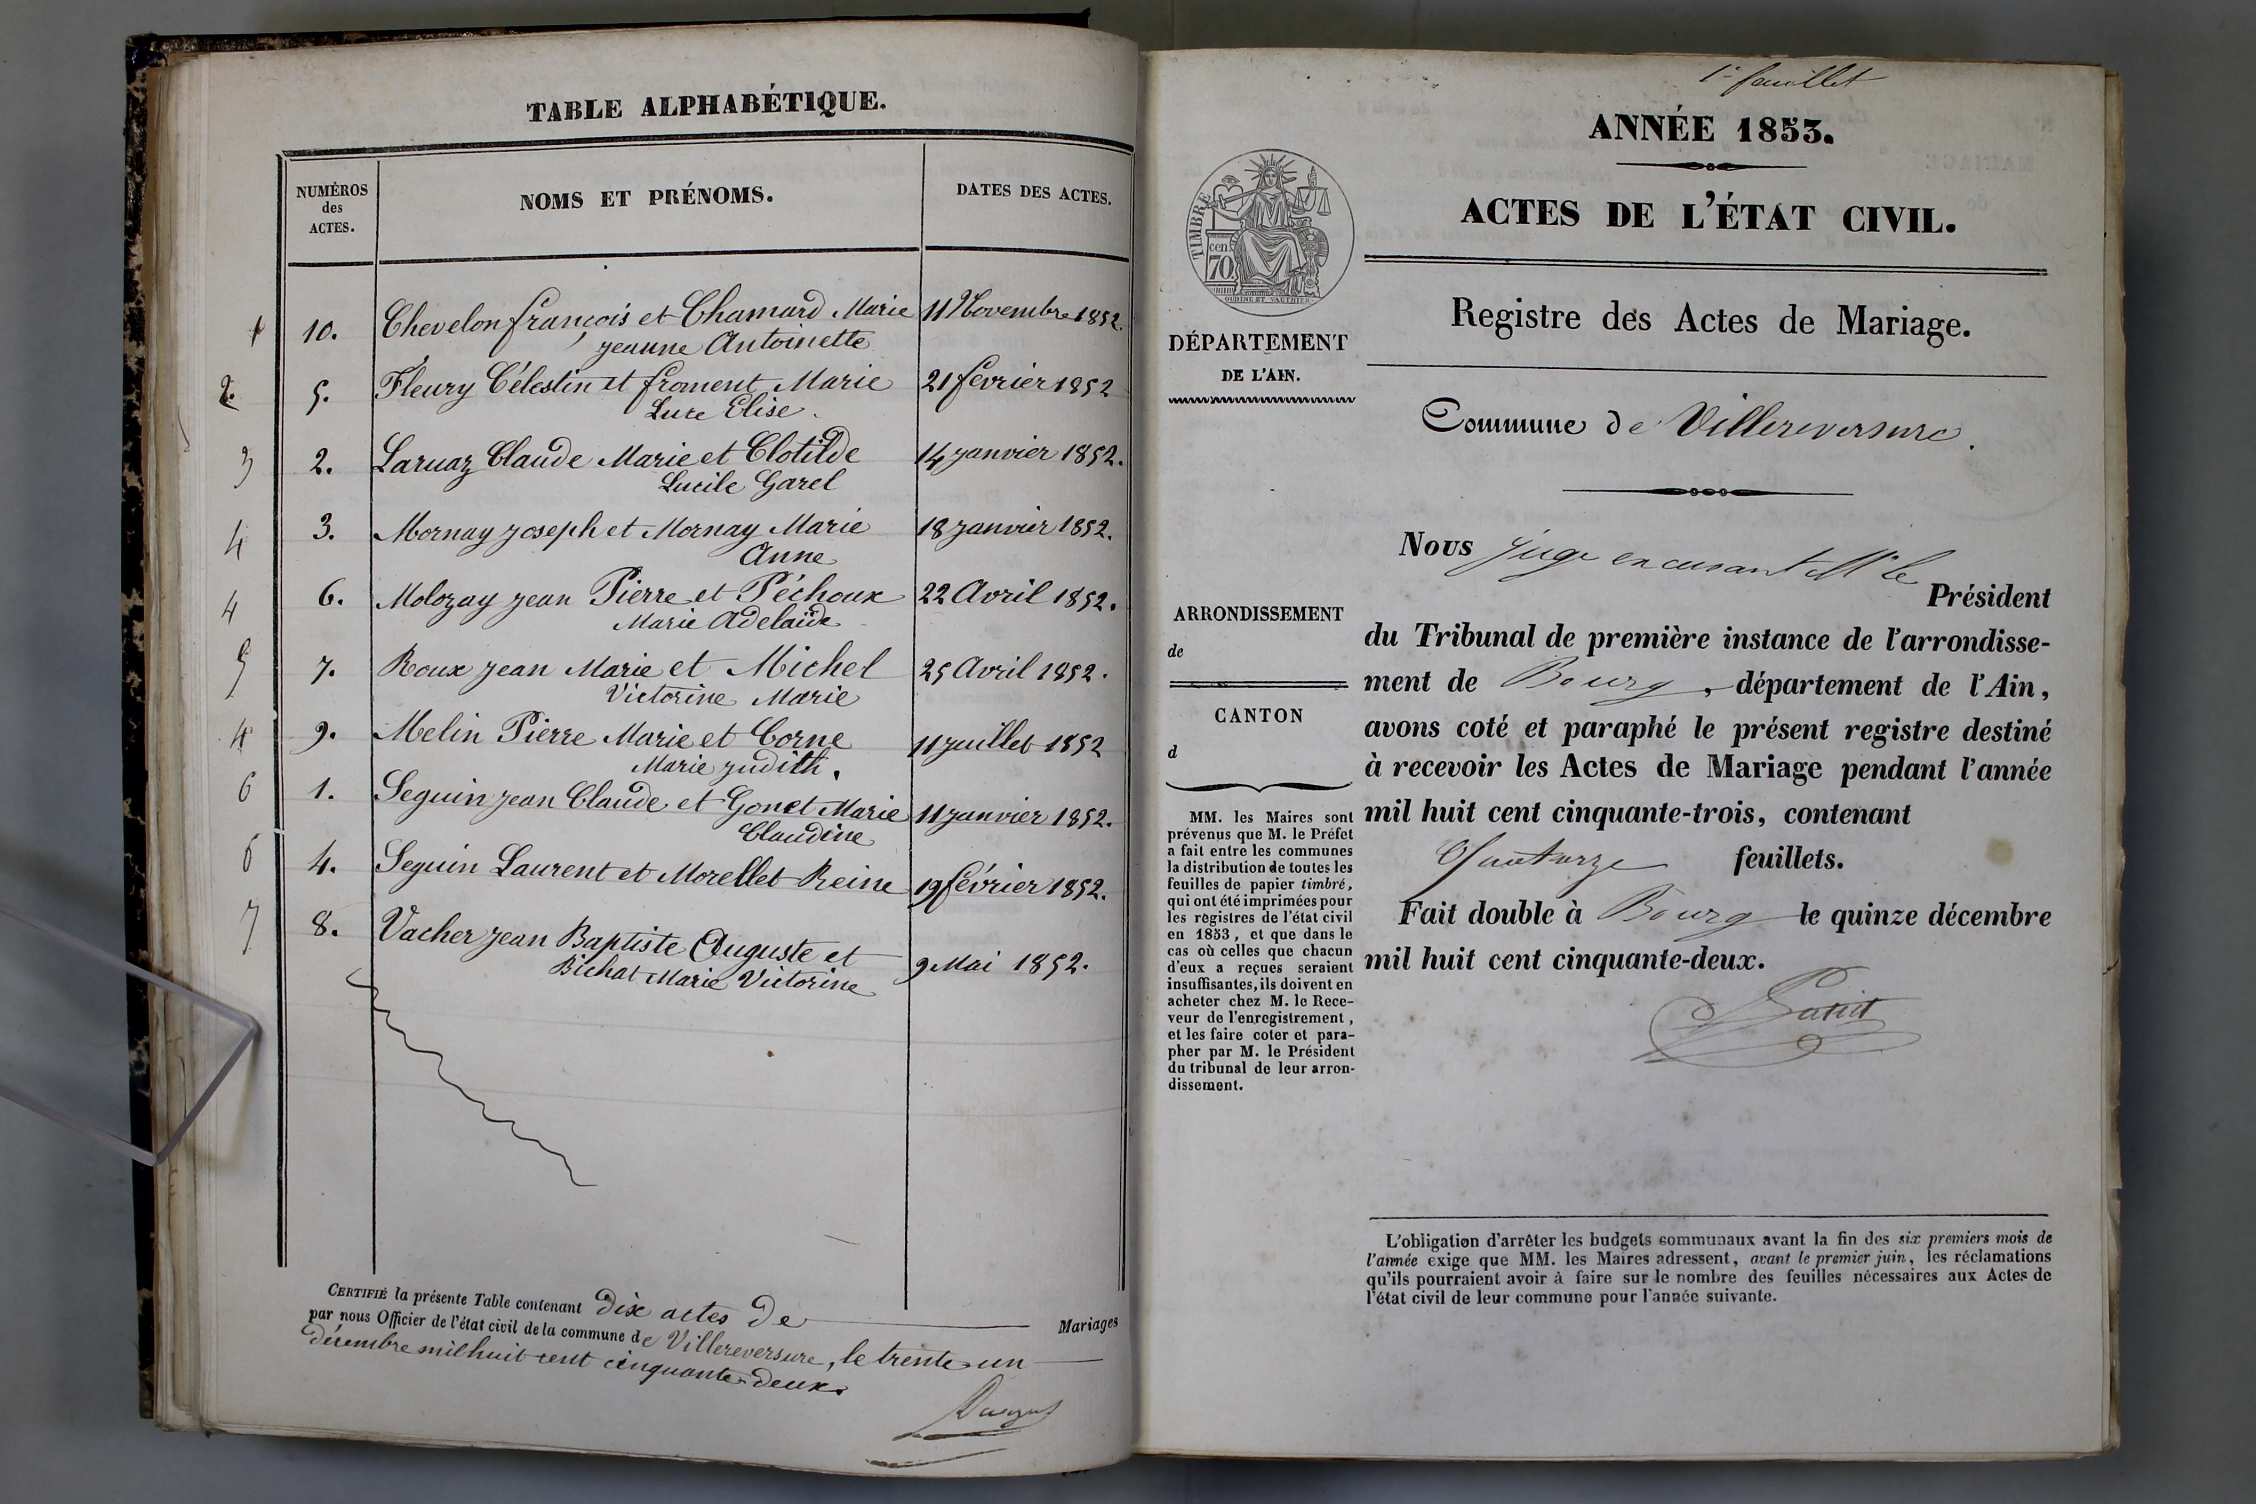 TABLE ALPHABÉTIQUE.
NUMÉROS
des
ACTES.
NOMS ET PRÉNOMS.
DATES DES ACTES.
1 10. Chevelon françois et Chamard Marie 11 Novembre 1852.
jeanne Antoinette
2. 5. Fleury Célestin et froment Marie 21 février 1852
Luce Elise.
3 2. Laruaz Claude Marie et Clotilde 14 janvier 1852.
Lucile Garel
4 3. Mornay joseph et Mornay Marie 18 janvier 1852.
Anne
4 6. Molozay jean Pierre et Péchoux 22 Avril 1852.
Marie Adelaïde
5 7. Roux jean Marie et Michel 25 Avril 1852.
Victorine Marie
4 9. Melin Pierre Marie et Corne 11 juillet 1852
Marie judith.
6 1. Seguin jean Claude et Gonet Marie 11 janvier 1852.
Claudine
6 4. Seguin Laurent et Morellet Reine 19 février 1852.
7 8. Vacher jean Baptiste Auguste et
Bichat Marie Victorine 9 Mai 1852.
CERTIFIÉ la présente Table contenant dix actes de Mariages
par nous Officier de l'état civil de la commune de Villereversure, le trente un
décembre mil huit cent cinquante deux.
1er feuillet
ANNÉE 1853.
ACTES DE L'ÉTAT CIVIL.
TIMBRE
cen.
70
OUDINÉ ET VAUTHIER
Registre des Actes de Mariage.
DÉPARTEMENT
DE L'AIN.
Commune de Villereversure.
ARRONDISSEMENT
de
CANTON
d
MM. les Maires sont
prévenus que M. le Préfet
a fait entre les communes
la distribution de toutes les
feuilles de papier timbré,
qui ont été imprimées pour
les registres de l'état civil
en 1853, et que dans le
cas où celles que chacun
d'eux a reçues seraient
insuffisantes, ils doivent en
acheter chez M. le Rece-
veur de l'enregistrement,
et les faire coter et para-
pher par M. le Président
du tribunal de leur arron-
dissement.
Nous juge en cusant Mr le
Président
du Tribunal de première instance de l'arrondisse-
ment de Bourg, département de l'Ain,
avons coté et paraphé le présent registre destiné
à recevoir les Actes de Mariage pendant l'année
mil huit cent cinquante-trois, contenant
Quatorze feuillets.
Fait double à Bourg le quinze décembre
mil huit cent cinquante-deux.
L'obligation d'arrêter les budgets communaux avant la fin des six premiers mois de
l'année exige que MM. les Maires adressent, avant le premier juin, les réclamations
qu'ils pourraient avoir à faire sur le nombre des feuilles nécessaires aux Actes de
l'état civil de leur commune pour l'année suivante.